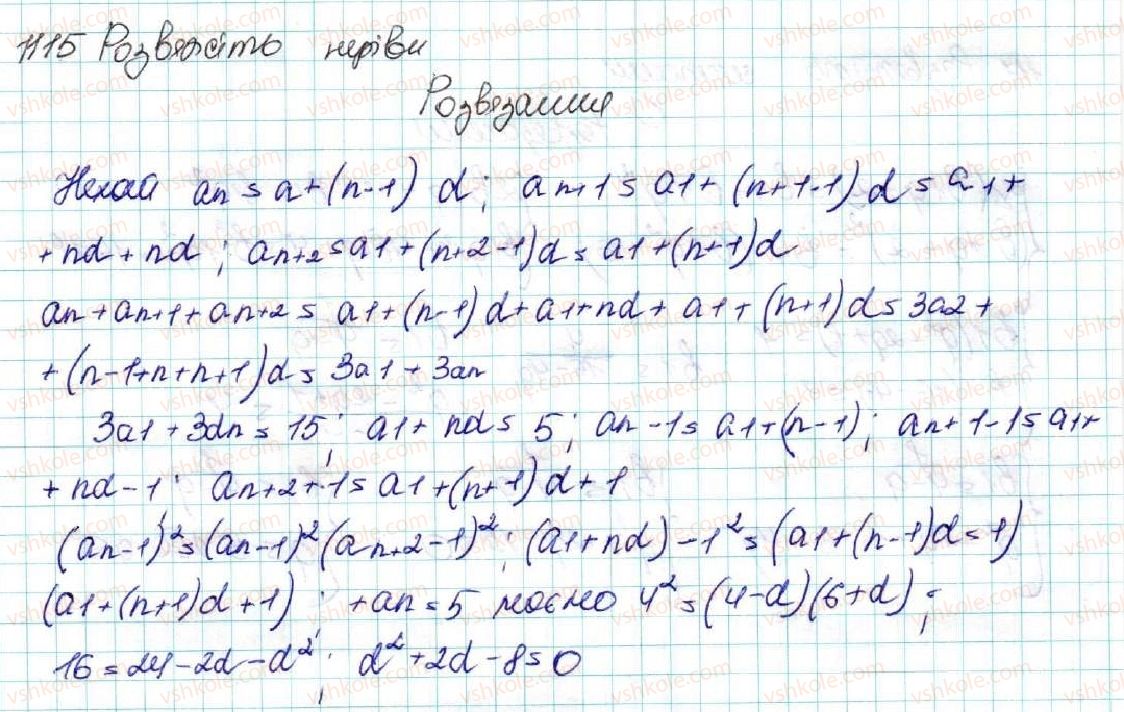 1115 Розвяжіть неріви
Розвязання
Нехай an = a + (n-1) d; an+1 = a1 + (n+1-1) d = a1+
+ nd + nd ; an+2 = a1 + (n+2-1)d = a1 + (n+1)d
an + an+1 + an+2 = a1 + (n-1) d + a1 + nd + a1 + (n+1)d = 3a2 +
+ (n-1+n+n+1)d = 3a1 + 3an
3a1 + 3dn = 15; a1 + nd = 5; an - 1 = a1 + (n-1); an+1-1 = a1+
+ nd - 1; an+2+1 = a1 + (n+1)d + 1
(an-1)² = (an-1)² (an+2-1)²; (a1+nd) - 1² = (a1+(n-1)d=1)
(a1+(n+1)d+1); +an = 5 маємо 4² = (4-d)(6+d);
16 = 24 - 2d - d²; d² + 2d - 8 = 0